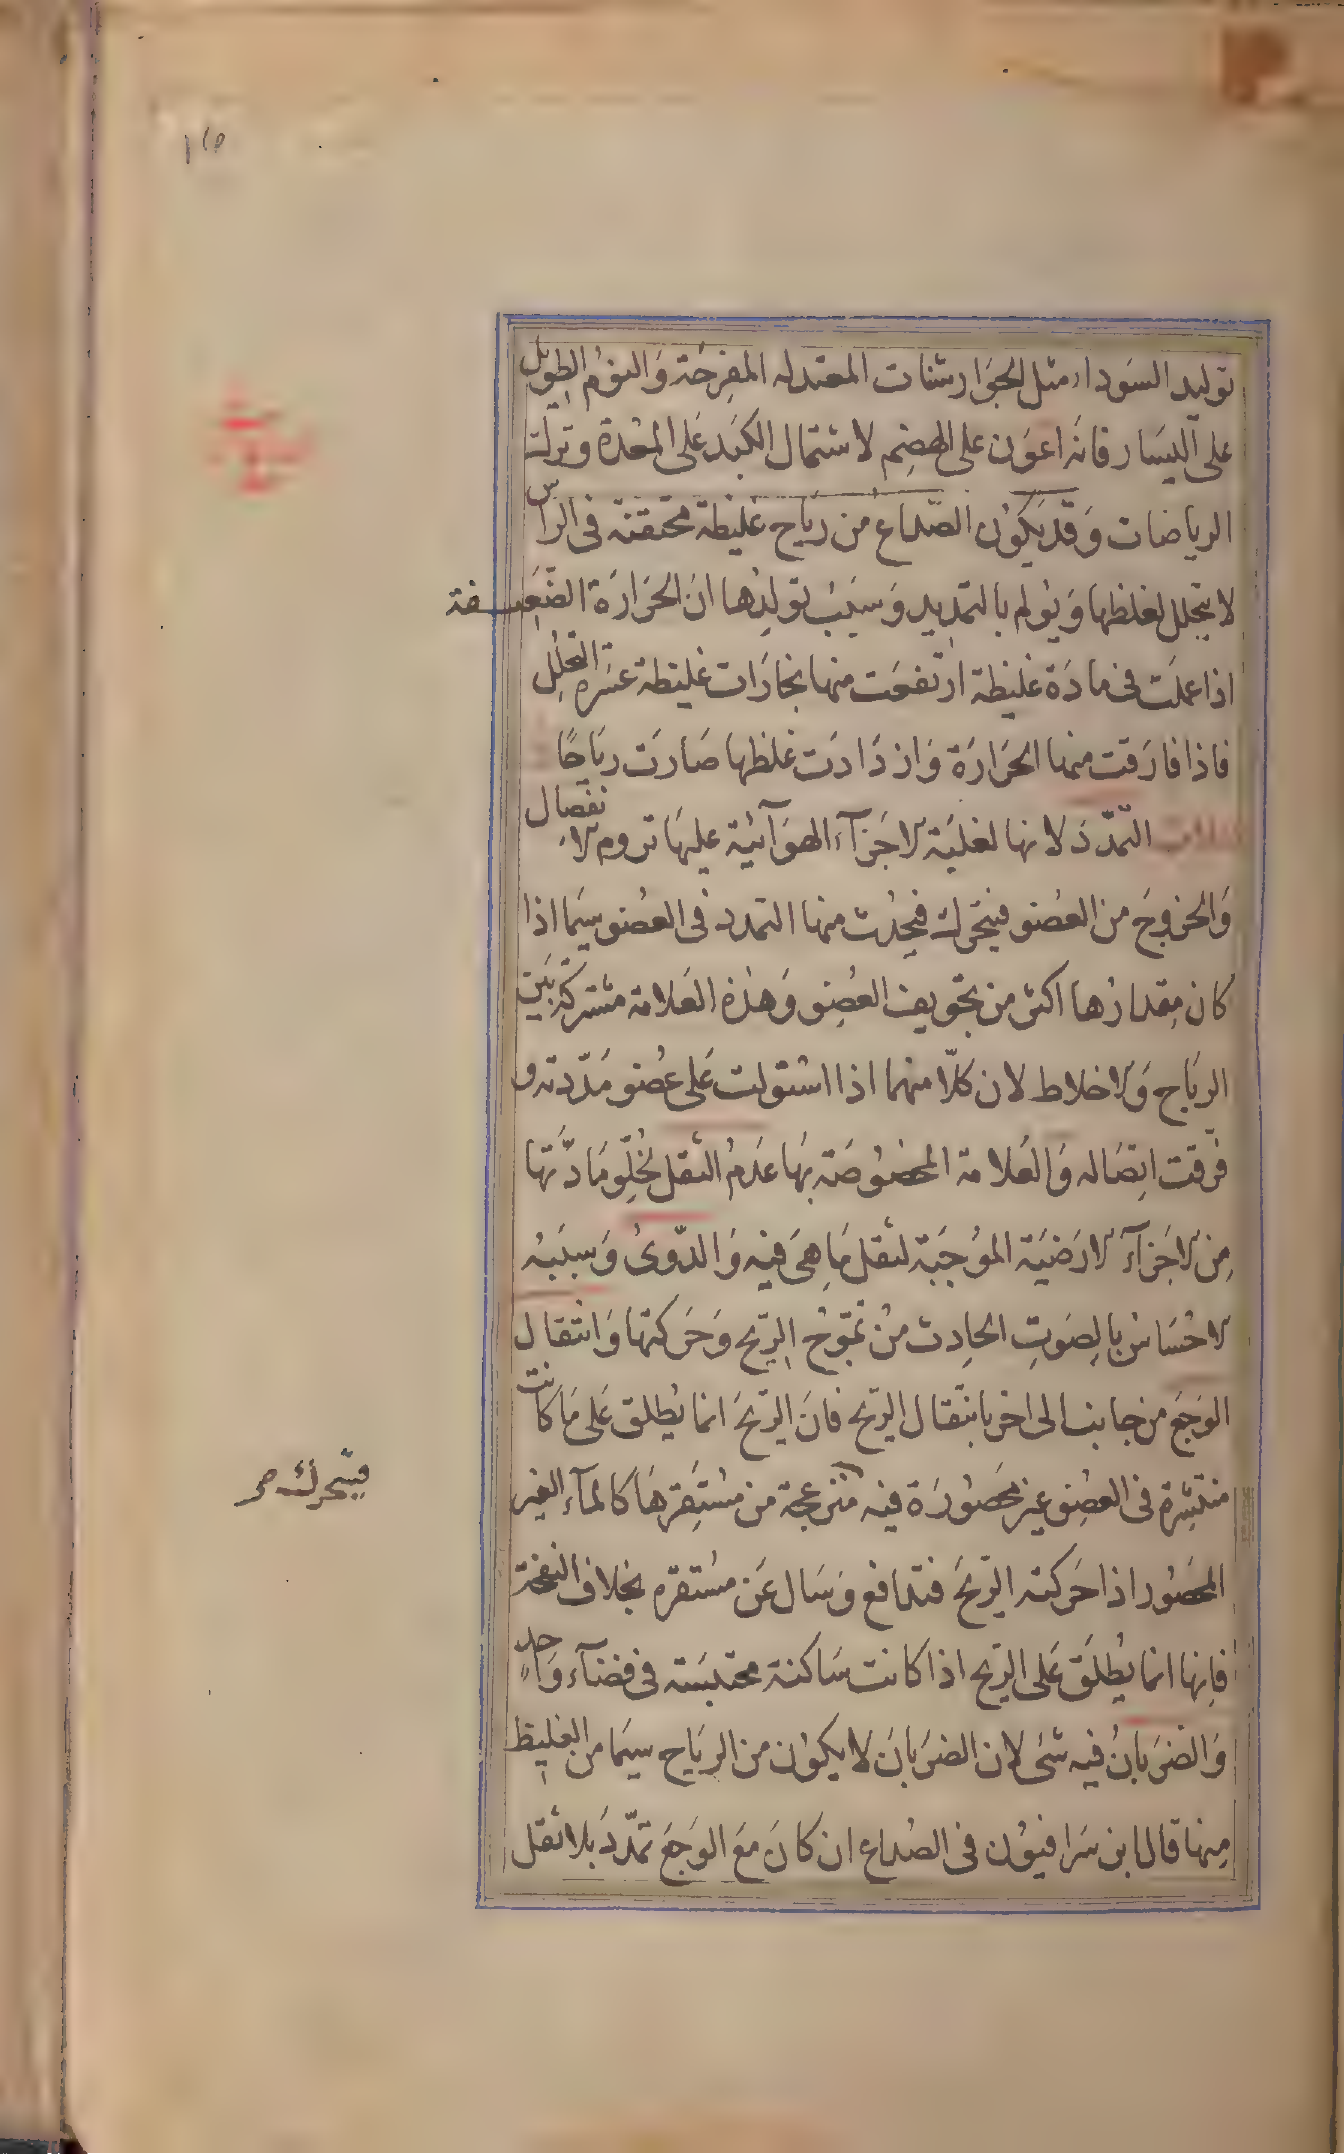 توليد السَوداء مثل الجَوارشنات المعتدله المفرحَة وَالنومُ الطويل
على اليسَار فانَه اعوَن على الهضِم لاشتمال الكبَد عَلى المعُدة وتركت
الرياضات وَقد يَكوُن الصّداع من رياح غليظة محتقنة فى الراس
لا يتحلل لغلظها وَيوُلم بالتمديد وَسَببُ توَلدُها ان الحَرارَة الضَعيفة
اذا عملَت فى مادَة غليظة ارتفعَت منها بخارَات غليظة عسَرة التحلل
فاذا فارَقت منها الحَرارَة وَازدَادَت غلظها صَارَت ريَاحًا
التمدّدَ لانها لغلبَة الاجَزآء الهوَآئية عليهَا تروم الانفصال
وَالخروجَ من العضو فيتحرك فيحدُث منها التمدد فى العضو سيَما اذا
كان مِقدارُها اكثر من تجويف العضِو وَهذه العَلامة مشتركة بَين
الريَاح وَالاخلاط لان كلّا منهما اذا استولت عَلى عضو مَدّدته و
فرّقت اتصَاله وَالعَلامة المخصوُصَة بهَا عدَمُ الثقل لخُلّو مَادّتها
مِن الاجَزآءَ الارَضيَة الموُجبَة لثقل مَا هىَ فيه وَالدّوىُ وَسببَهُ
الاحسَاسُ بالصَوتِ الحادِث مِنُ تموّجُ الريّح وَحَركتها وَانتقال
الوَجَع من جانب الى اخر بانتقال الريّح فانَ الريّحَ انما يُطلق عَلى مَا كانت
منتشِرة فى العضِو غيرَ محصَورَة فيه منزعجة من مسُتَقرهَا كالمآء الغير
المحصَور اذا حَركته الريّحَ فتدافع وَسَال عَن مسُتقره بخلاف النفخة
فانِها انما يطُلَق عَلى الريّح اذا كانت سَاكنة محتبسَة فى فضآء وَاحد
وَالضرَبانُ فيه شىَ لان الضرَبانَ لا يكوُن من الريَاح سيَما من الغليظ
مِنها قال ابن سَرافيوُن فى الصُداع ان كانَ معَ الوَجَع تمدّدَ بلا ثقل
فيتحرك صح